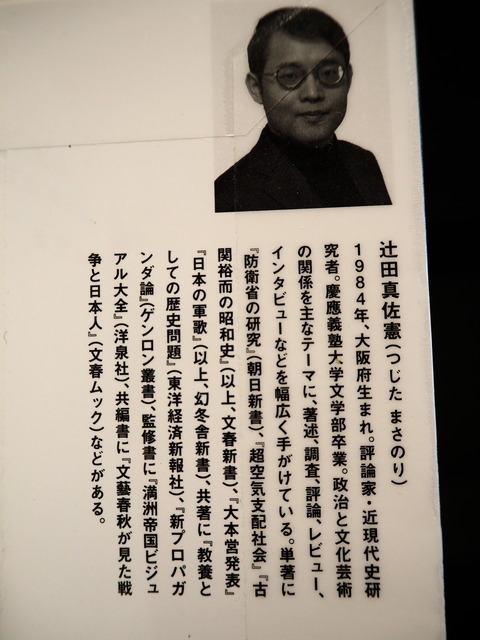 辻田真佐憲(つじた まさのり)
1984年、大阪府生まれ。評論家・近現代史研
究者。慶應義塾大学文学部卒業。政治と文化芸術
の関係を主なテーマに、著述、調査、評論、レビュー、
インタビューなどを幅広く手がけている。単著に
『防衛省の研究』(朝日新書)、『超空気支配社会』『古
関裕而の昭和史』(以上、文春新書)、『大本営発表』
『日本の軍歌』(以上、幻冬舎新書)、共著に『教養と
しての歴史問題』(東洋経済新報社)、『新プロパガ
ンダ論』(ゲンロン叢書)、監修書に『満洲帝国ビジュ
アル大全』(洋泉社)、共編書に『文藝春秋が見た戦
争と日本人』(文春ムック)などがある。